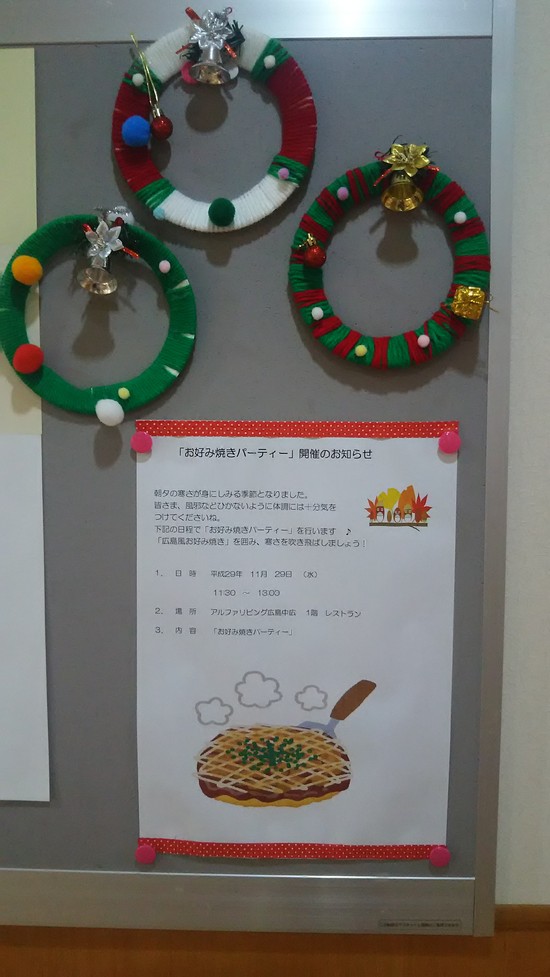 「お好み焼きパーティー」開催のお知らせ
朝夕の寒さが身にしみる季節となりました。
皆さま、風邪などひかないように体調には十分気を
つけてくださいね。
下記の日程で「お好み焼きパーティー」を行います ♪
「広島風お好み焼き」を囲み、寒さを吹き飛ばしましょう！
1. 日 時 平成29年 11月 29日 （水）
11:30 ～ 13:00
2. 場 所 アルファリビング広島中広 1階 レストラン
3. 内 容 「お好み焼きパーティー」